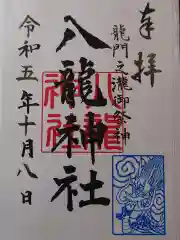 奉拝
龍門之瀧御祭神
八龍神社
令和五年十月八日